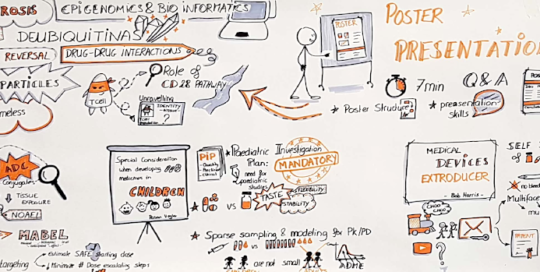 ROSIS
EPIGENOMICS & BIO INFORMATICS
DEUBIQUITINAS
REVERSAL
DRUG-DRUG INTERACTIONS
PARTICLES
meless
T CELL
Role of
CD28 PATHWAY
Unravelling
IDENTITY
?
POSTER
POSTER
PRESENTATION
7min
Q & A
★ Poster Structure
★ presentation
skills
ADC
Conjugate
↓ TISSUE
EXPOSURE
NOAEL
MABEL
targeting
estimate SAFE starting dose
Minimise # Dose escalating steps
Special Consideration
when developing
medicines in
CHILDREN
PiP
★ Paediatric Investigation
Plan:
MANDATORY
need for
paediatric
studies
vs
TASTE
STABILITY
★ Sparse sampling & modeling for PK/PD
vs
are not small
ADME
MEDICAL
DEVICES
EXTRODUCER
- Bob Harris -
Choo
Choo
?
SELF
of
Multiface